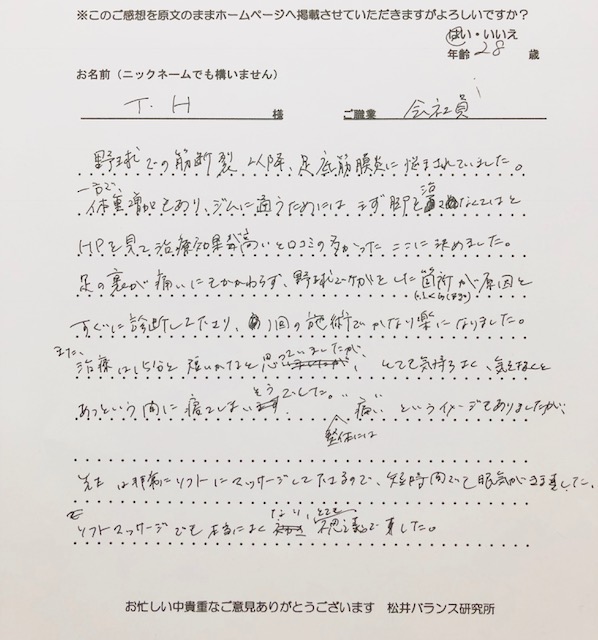 ※このご感想を原文のままホームページへ掲載させていただきますがよろしいですか？
はい・いいえ
年齢 28 歳
お名前（ニックネームでも構いません）
T. H 様 ご職業 会社員
野球での筋断裂以降、足底筋膜炎に悩まされていました。
一方で、
体重増加もあり、ジムに通うためにはまず脚を治さなくてはと
HPを見て治療効果が高いと口コミの多かったここに決めました。
足の裏が痛いにもかかわらず、野球でケガをした箇所が原因と
(ふくらはぎ)
すぐに診断して下さり、1回の施術でかなり楽になりました。
また、
治療は15分と短いかなと思っていましたが、とても気持ちよく、気がつくと
あっという間に寝てしまいそうでした。 "痛い"というイメージでありましたが、
整体には
先生は非常にソフトにマッサージして下さるので、短時間でも眠気がきました。
ソフトマッサージでも本当によくなり、とても不思議で
お忙しい中貴重なご意見ありがとうございます 松井バランス研究所